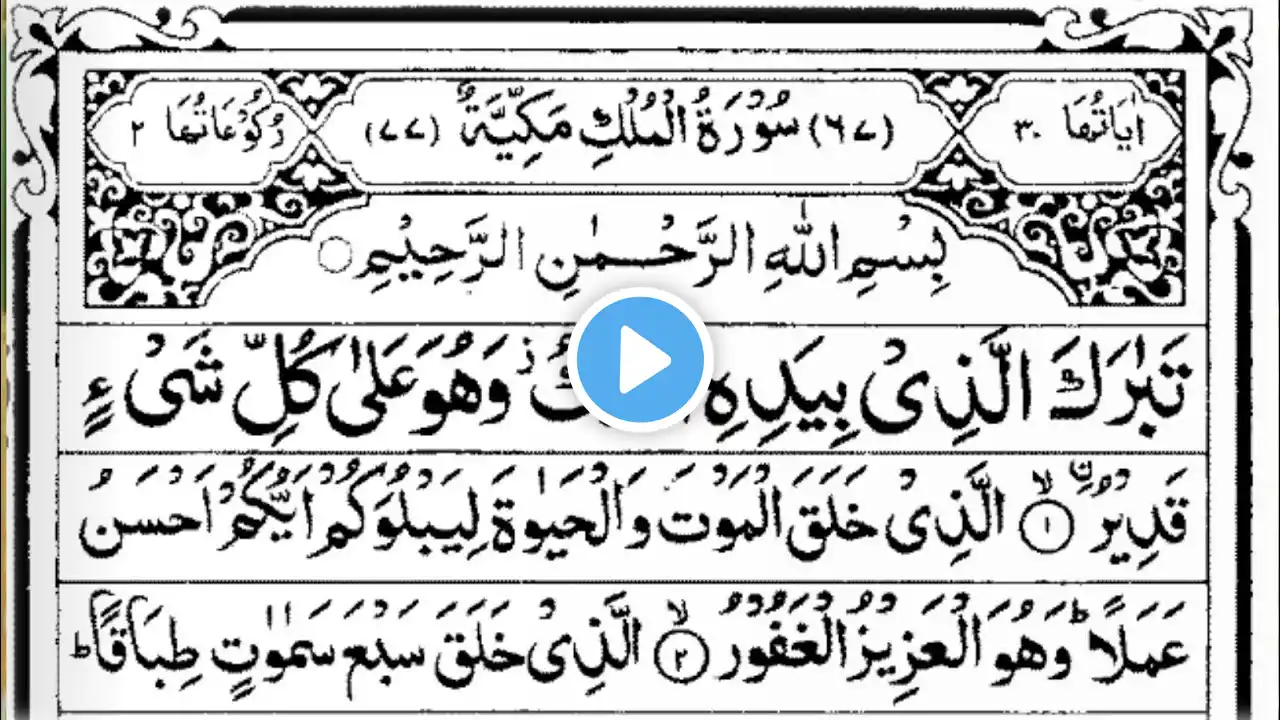 اٰيَاتُهَا ٣٠ (٦٧) سُوْرَةُ الْمُلْكِ مَكِّيَّةٌ (٧٧) رُكُوْعَاتُهَا ٢
بِسْمِ اللّٰهِ الرَّحْمٰنِ الرَّحِيْمِ
تَبٰرَكَ الَّذِیْ بِیَدِهِ وَهُوَ عَلٰی كُلِّ شَیْءٍ
قَدِیْرُ ۨۙ ﴿١﴾ الَّذِیْ خَلَقَ الْمَوْتَ وَالْحَیٰوةَ لِیَبْلُوَكُمْ اَیُّكُمْ اَحْسَنُ
عَمَلًا ؕ وَهُوَ الْعَزِیْزُ الْغَفُوْرُ ۙ ﴿٢﴾ الَّذِیْ خَلَقَ سَبْعَ سَمٰوٰتٍ طِبَاقًا ؕ